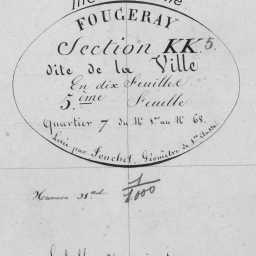 FOUGERAY
Section KK 5.
dite de la Ville
En dix Feuilles
5.ème Feuille
Quartier 7 du N° 1er au N° 68.
Levée par Fouchet, Géomètre de 1ère Classe
1/1000